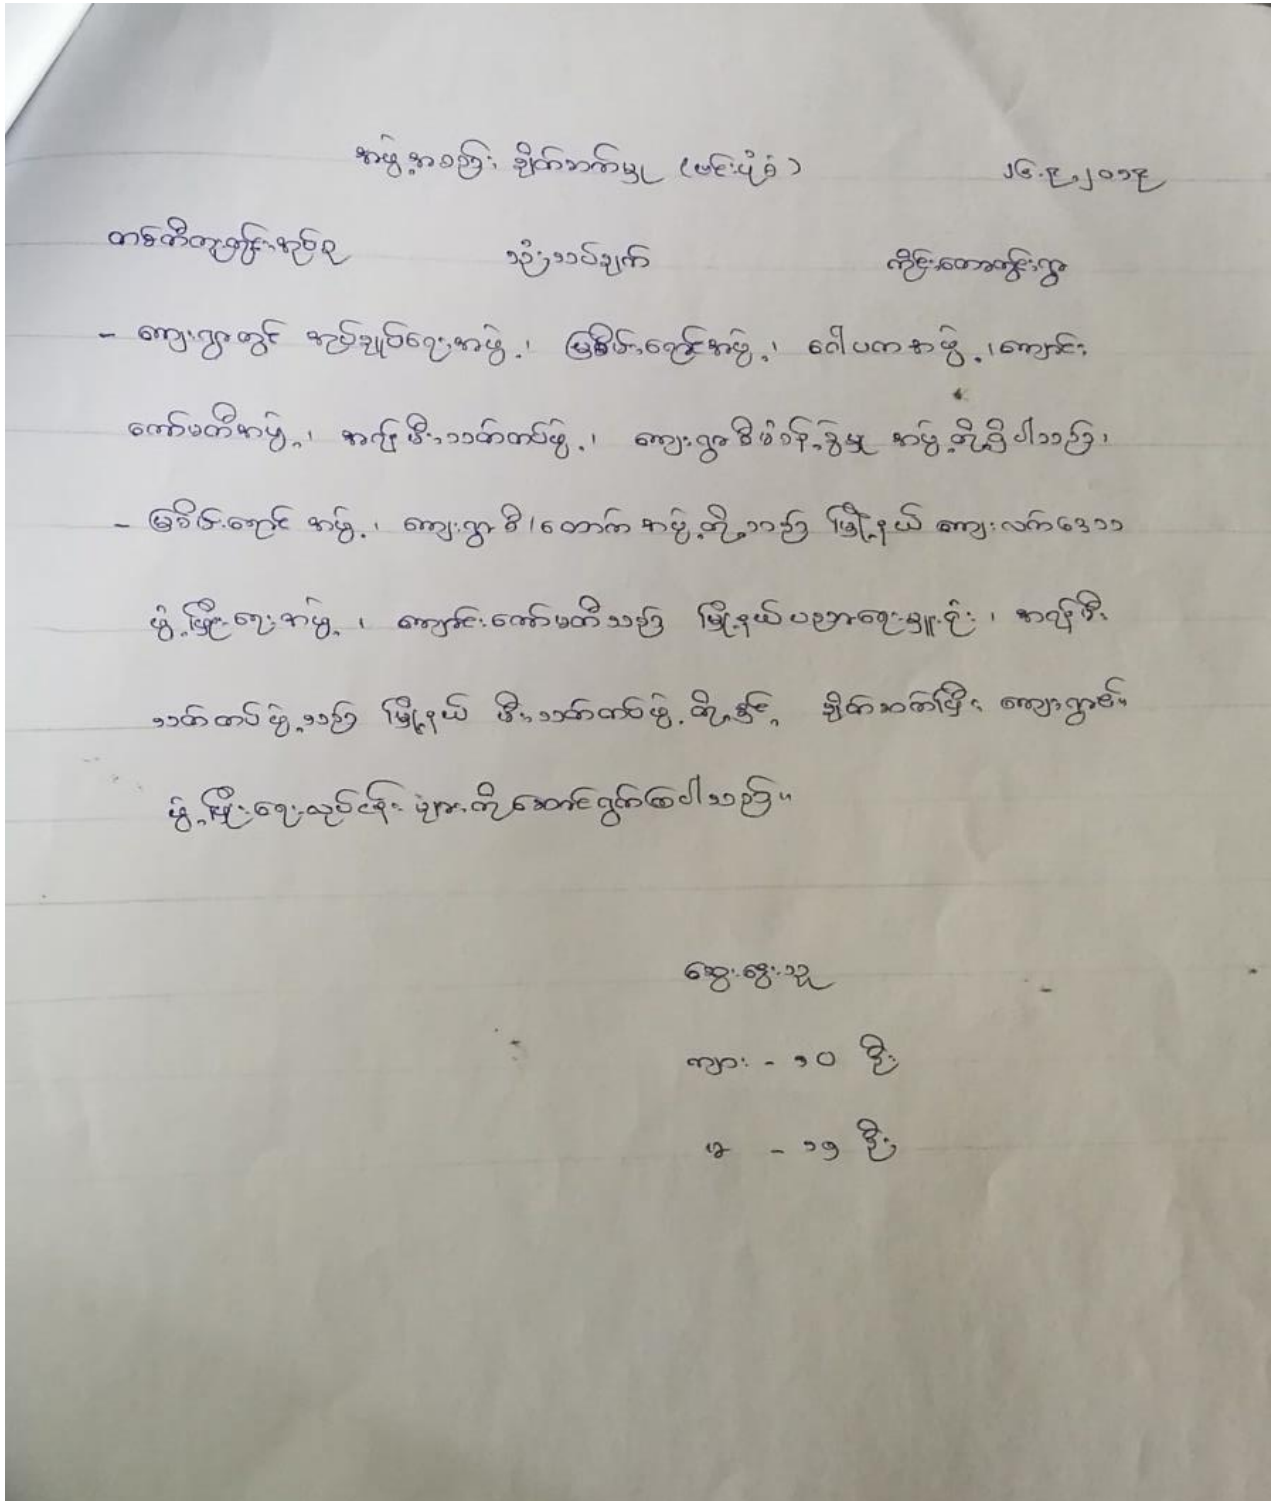 အဖွဲ့အစည်း ချိတ်ဆက်မှု (ဗင်းပုံစံ) ၂၆.၉.၂၀၁၉
တစ်တီတူးတွင်းအုပ်စု သုံးသပ်ချက် ကိုင်းတောတွင်းရွာ
- ကျေးရွာတွင် အုပ်ချုပ်ရေးအဖွဲ့၊ မြစိမ်းရောင်အဖွဲ့၊ ဂေါပကအဖွဲ့၊ကျောင်း
ကော်မတီအဖွဲ့၊ အရန်မီးသတ်တပ်ဖွဲ့၊ ကျေးရွာစီမံခန့်ခွဲမှု အဖွဲ့တို့ရှိပါသည်၊
- မြစိမ်းရောင် အဖွဲ့၊ ကျေးရွာစီ/ထောက်အဖွဲ့တို့သည် မြို့နယ် ကျေးလက်ဒေသ
ဖွံ့ဖြိုးရေးအဖွဲ့၊ ကျောင်းကော်မတီသည် မြို့နယ်ပညာရေးမှူးရုံး၊ အရန်မီး
သတ်တပ်ဖွဲ့သည် မြို့နယ် မီးသတ်တပ်ဖွဲ့တို့နှင့် ချိတ်ဆက်ပြီး ကျေးရွာ
ဖွံ့ဖြိုးရေးလုပ်ငန်းများကိုဆောင်ရွက်ကြပါသည်။
ဆွေးနွေးသူ
ကျား - ၁၀ ဦး
မ - ၁၅ ဦး